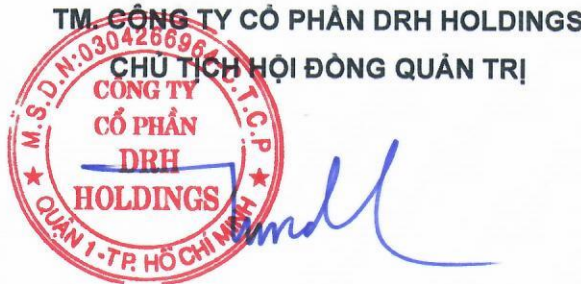 TM. CÔNG TY CỔ PHẦN DRH HOLDINGS
CHỦ TỊCH HỘI ĐỒNG QUẢN TRỊ
M.S.D.N:0304266964-C.T.C.P
CÔNG TY
CỔ PHẦN
DRH
HOLDINGS
QUẬN 1-T.P. HỒ CHÍ MINH